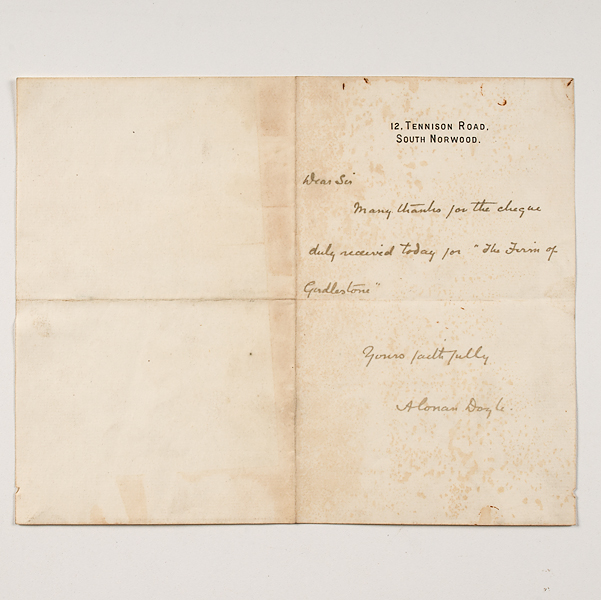 12, TENNISON ROAD,
SOUTH NORWOOD.
Dear Sir
Many thanks for the cheque
duly received today for "The Firm of
Girdlestone"
Yours faithfully
A Conan Doyle.